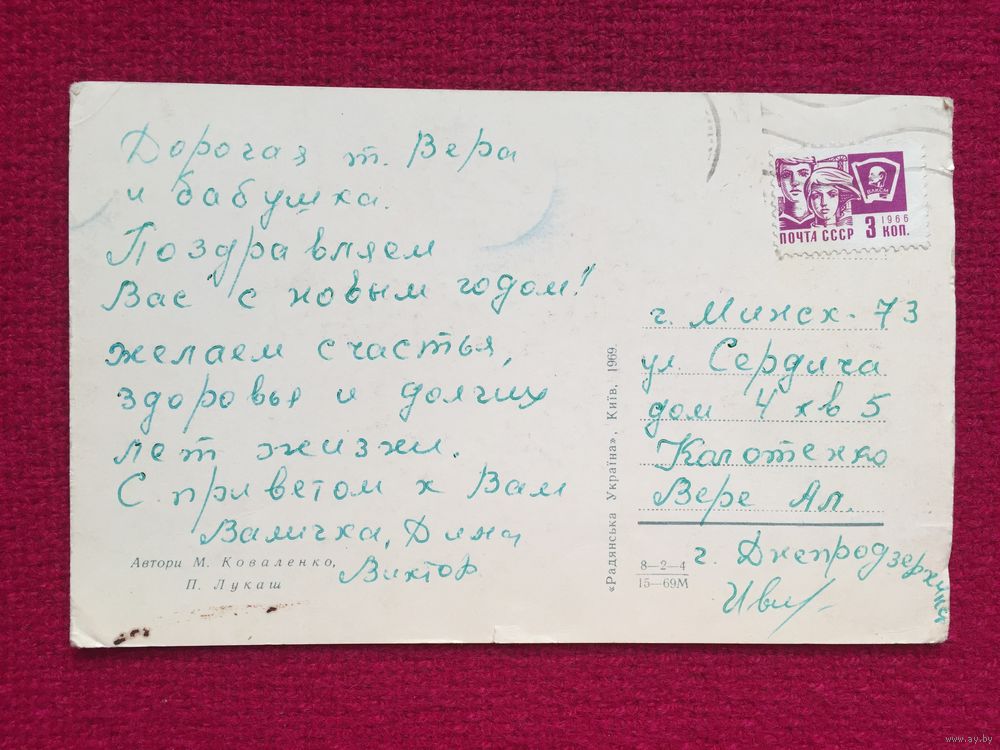 Дорогая т. Вера
и бабушка.
Поздравляем
Вас с новым годом!
желаем счастья,
здоровья и долгих
лет жизни.
С приветом к Вам
Валичка, Дина
Виктор
Автори М. Коваленко,
П. Лукаш
«Радянська Україна», Київ, 1969.
ВЛКСМ
1966
ПОЧТА СССР 3 КОП.
г. Минск-73
ул. Сердича
дом 4 кв 5
Калотенко
Вере Ал.
8—2—4
15—69М
г. Днепродзержинск
www.ay.by